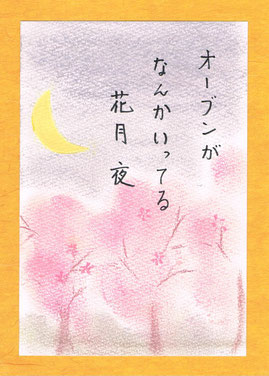 オーブンが
なんかいってる
花月夜